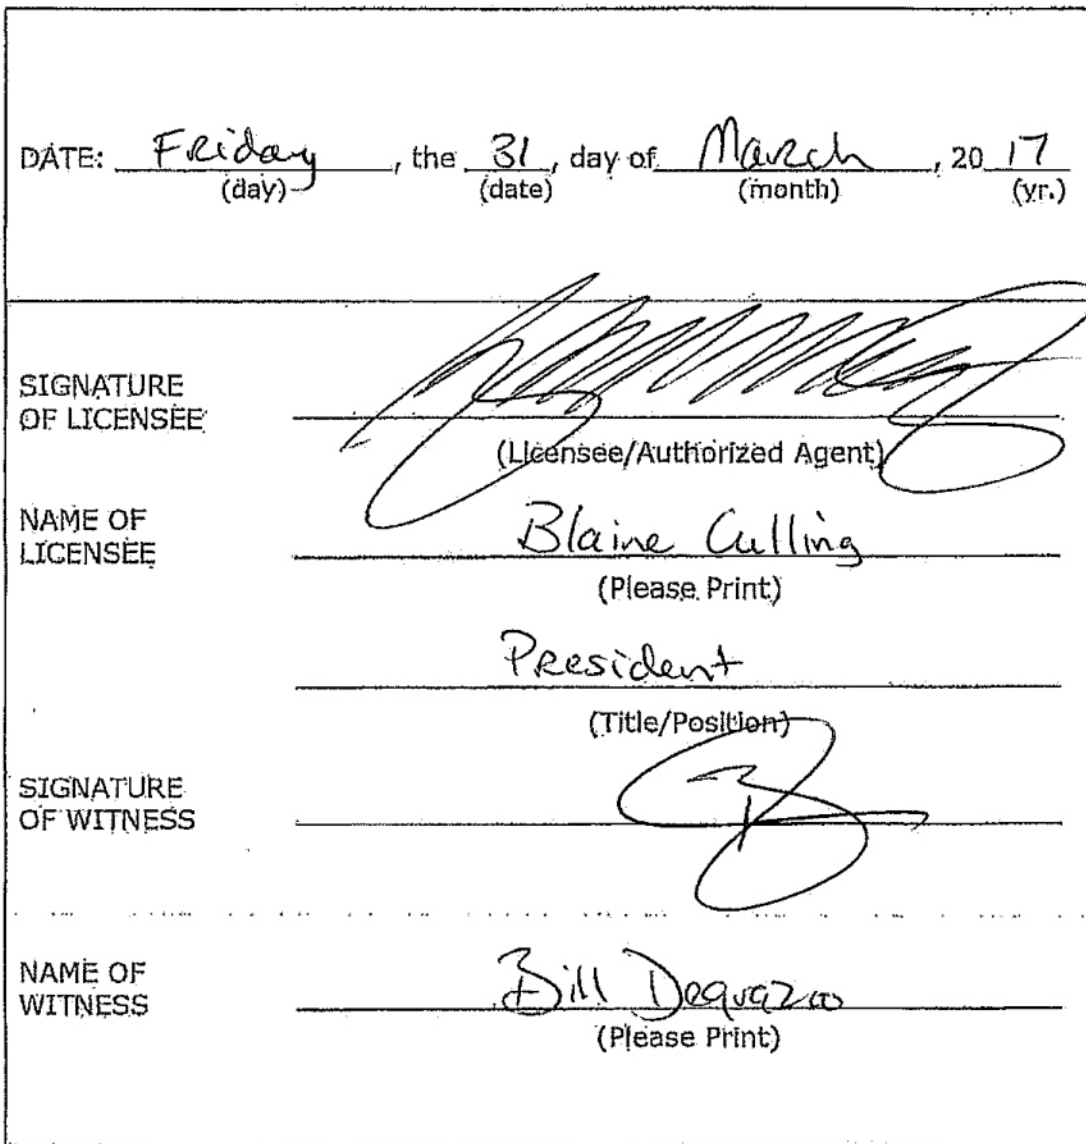 DATE: Friday, the 31, day of March, 20 17
(day) (date) (month) (yr.)
SIGNATURE
OF LICENSEE
(Licensee/Authorized Agent)
NAME OF
LICENSEE
Blaine Culling
(Please Print)
President
(Title/Position)
SIGNATURE
OF WITNESS
NAME OF
WITNESS
Bill
(Please Print)